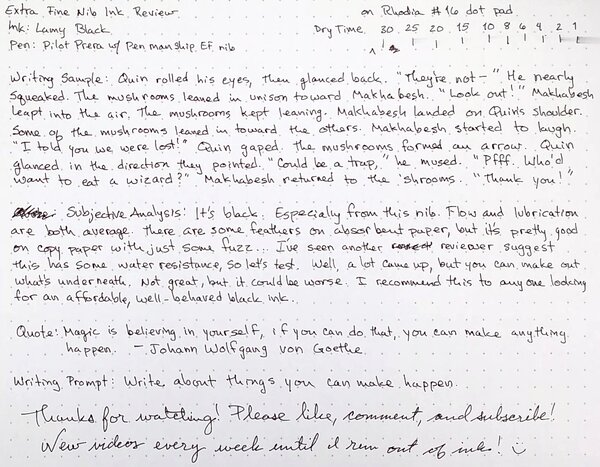 Extra Fine Nib Ink Review on Rhodia #16 dot pad
Ink: Lamy Black Dry Time 30 25 20 15 10 8 6 4 2 1
Pen: Pilot Prera w/ Penmanship EF nib
Writing Sample: Quin rolled his eyes, then glanced back. "They're not—" He nearly
squeaked. The mushrooms leaned in unison toward Makhabesh. "Look out!" Makhabesh
leapt into the air. The mushrooms kept leaning. Makhabesh landed on Quin's shoulder.
Some of the mushrooms leaned in toward the others. Makhabesh started to laugh.
"I told you we were lost!" Quin gaped. The mushrooms formed an arrow. Quin
glanced in the direction they pointed. "Could be a trap," he mused. "Pfff. Who'd
want to eat a wizard?" Makhabesh returned to the 'shrooms. "Thank you!"
Subjective Analysis: It's black. Especially from this nib. Flow and lubrication
are both average. There are some feathers on absorbent paper, but it's pretty good
on copy paper with just some fuzz... I've seen another reviewer suggest
this has some water resistance, so let's test. Well, a lot came up, but you can make out
what's underneath. Not great, but it could be worse. I recommend this to anyone looking
for an affordable, well-behaved black ink.
Quote: Magic is believing in yourself, if you can do that, you can make anything
happen. — Johann Wolfgang von Goethe
Writing Prompt: Write about things you can make happen.
Thanks for watching! Please like, comment, and subscribe!
New videos every week until I run out of ink!